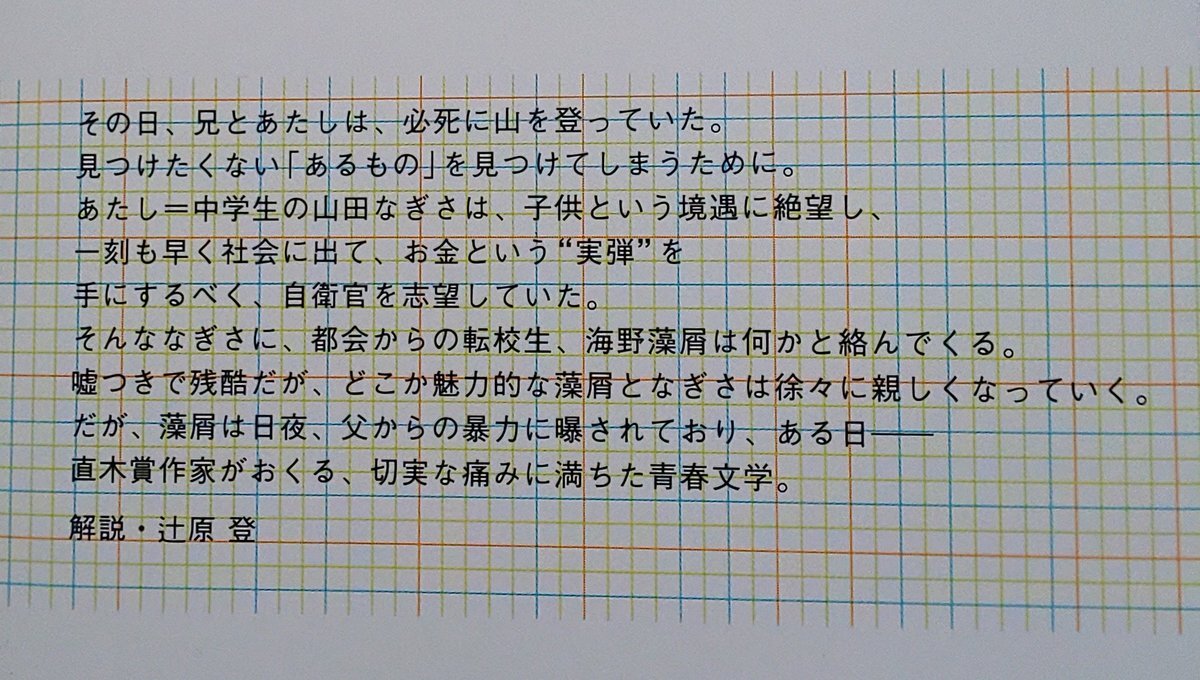 その日、兄とあたしは、必死に山を登っていた。
見つけたくない「あるもの」を見つけてしまうために。
あたし＝中学生の山田なぎさは、子供という境遇に絶望し、
一刻も早く社会に出て、お金という“実弾”を
手にするべく、自衛官を志望していた。
そんななぎさに、都会からの転校生、海野藻屑は何かと絡んでくる。
嘘つきで残酷だが、どこか魅力的な藻屑となぎさは徐々に親しくなっていく。
だが、藻屑は日夜、父からの暴力に曝されており、ある日――
直木賞作家がおくる、切実な痛みに満ちた青春文学。
解説・辻原 登